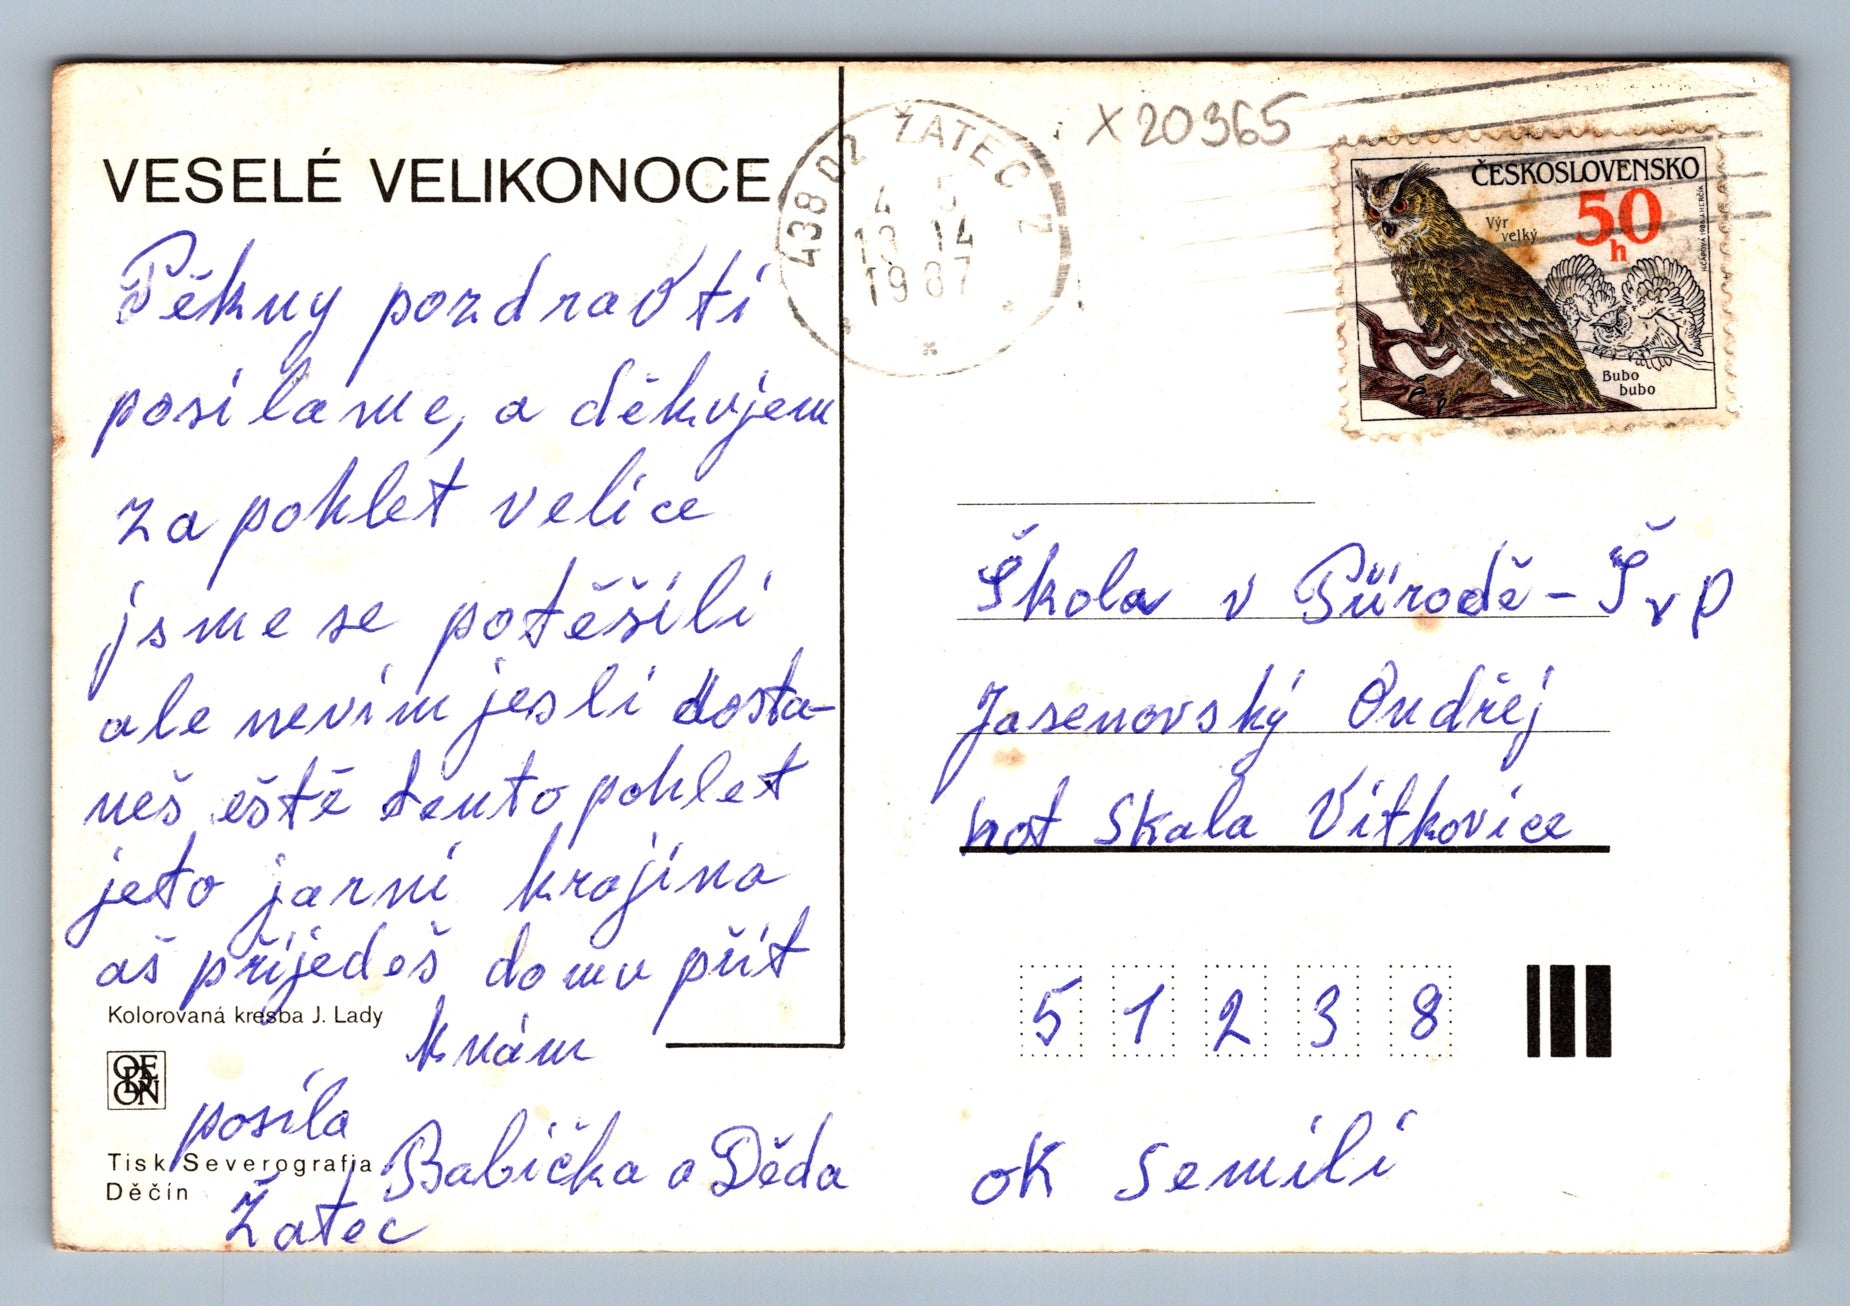 VESELÉ VELIKONOCE
Pěkny pozdrav ti
posilame, a děkujem
za pohlet velice
jsme se potěšili
ale nevim jesli dosta-
neš eště tento pohlet
jeto jarni krajina
aš přijedeš domu přit
knám
posíla
Babička a Děda
Žatec
Kolorovaná kresba J. Lady
ODEON
Tisk Severografia
Děčín
438 02 ŽATEC 2
4 5
13 14
1987
X 20365
ČESKOSLOVENSKO
50 h
Výr
velký
Bubo
bubo
Škola v Přírodě - Švp
Jasenovský Ondřej
hot Skala Vitkovice
51238
ok Semili